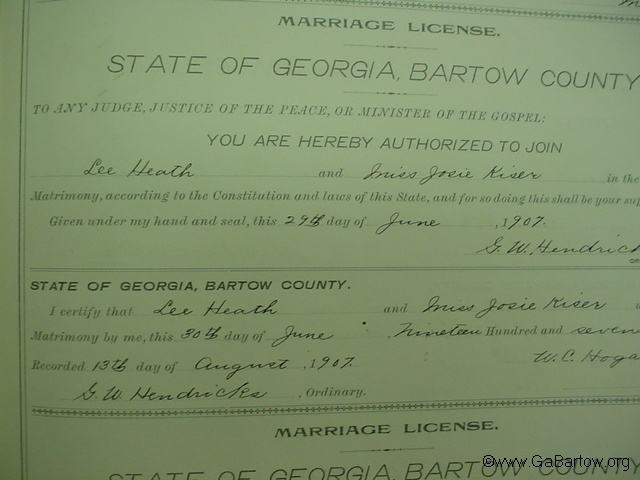 MARRIAGE LICENSE.
STATE OF GEORGIA, BARTOW COUNTY
TO ANY JUDGE, JUSTICE OF THE PEACE, OR MINISTER OF THE GOSPEL:
YOU ARE HEREBY AUTHORIZED TO JOIN
Lee Heath and Miss Josie Kiser in the
Matrimony, according to the Constitution and laws of this State, and for so doing this shall be your suf
Given under my hand and seal, this 29th day of June , 1907.
G. W. Hendrick
STATE OF GEORGIA, BARTOW COUNTY.
I certify that Lee Heath and Miss Josie Kiser
Matrimony by me, this 30th day of June , Nineteen Hundred and seven
Recorded 13th day of August , 1907. W. C. Hoga
G. W. Hendricks , Ordinary.
MARRIAGE LICENSE.
STATE OF GEORGIA, BARTOW COUNTY
©www.GaBartow.org